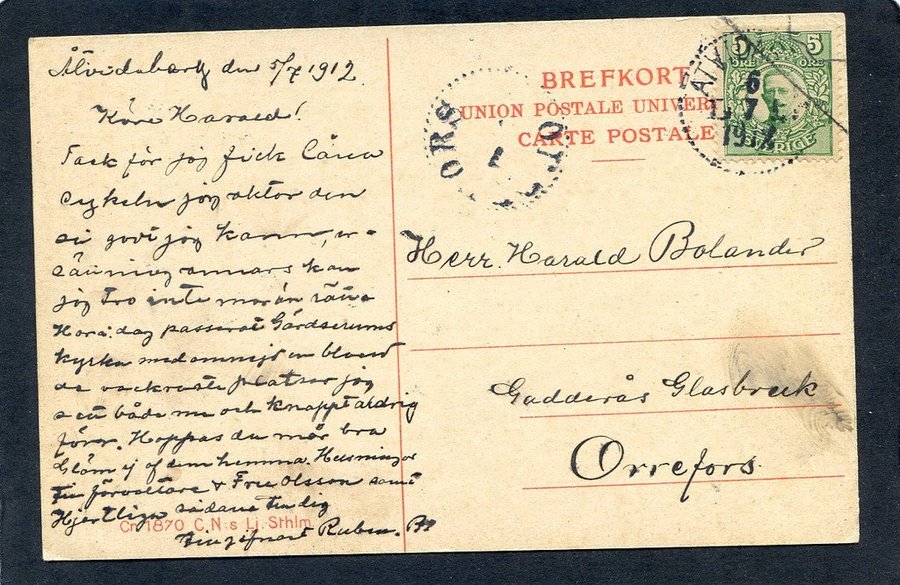 Åtvidaberg den 5/7 1912
Käre Harald!
Tack för jag fick låna
cykeln jag aktar den
så godt jag kann,
annars kan
jag tro inte mar än
Har i dag passerat Gärdserums
kyrka med omnejd en bland
de vackraste platser jag
sett både nu och knappt aldrig
förr. Hoppas du mår bra
Glöm ej af dem hemma. Helsningar
till förvaltare & Fru Olsson samt
Hjertliga sådana till dig
Ruben.
Cn 1870 C.N:s Lj. Sthlm.
BREFKORT
UNION POSTALE UNIVER
CARTE POSTALE
ORS
5 5
ÖRE ÖRE
SVERIGE
6
7
Herr. Harald Bolander
Gadderås Glasbruk
Orrefors.